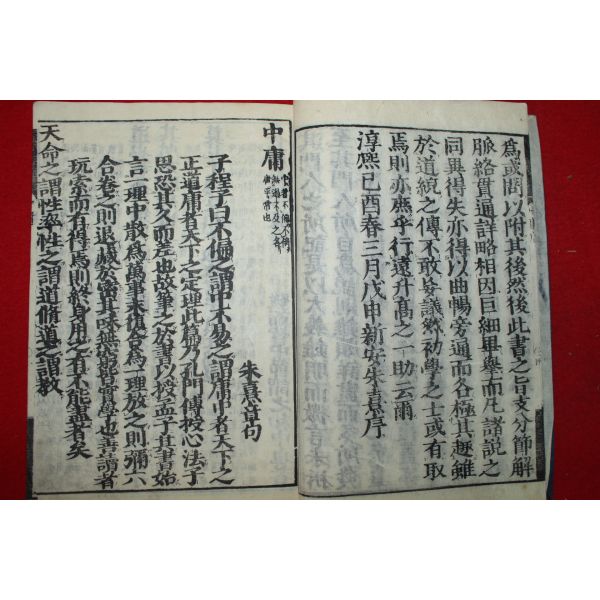 爲或問以附其後然後此書之旨支分節解
脉絡貫通詳略相因巨細畢擧而凡諸說之
同異得失亦得以曲暢旁通而各極其趣雖
於道統之傳不敢妄議然初學之士或有取
焉則亦庶乎行遠升高之一助云爾
淳熙己酉春三月戊申新安朱熹序
中庸
中者不偏不倚
無過不及之名
庸平常也
朱熹章句
子程子曰不偏之謂中不易之謂庸中者天下之
正道庸者天下之定理此篇乃孔門傳授心法子
思恐其久而差也故筆之於書以授孟子其書始
言一理中散爲萬事末復合爲一理放之則彌六
合卷之則退藏於密其味無窮皆實學也善讀者
玩索而有得焉則終身用之有不能盡者矣
天命之謂性率性之謂道脩道之謂敎